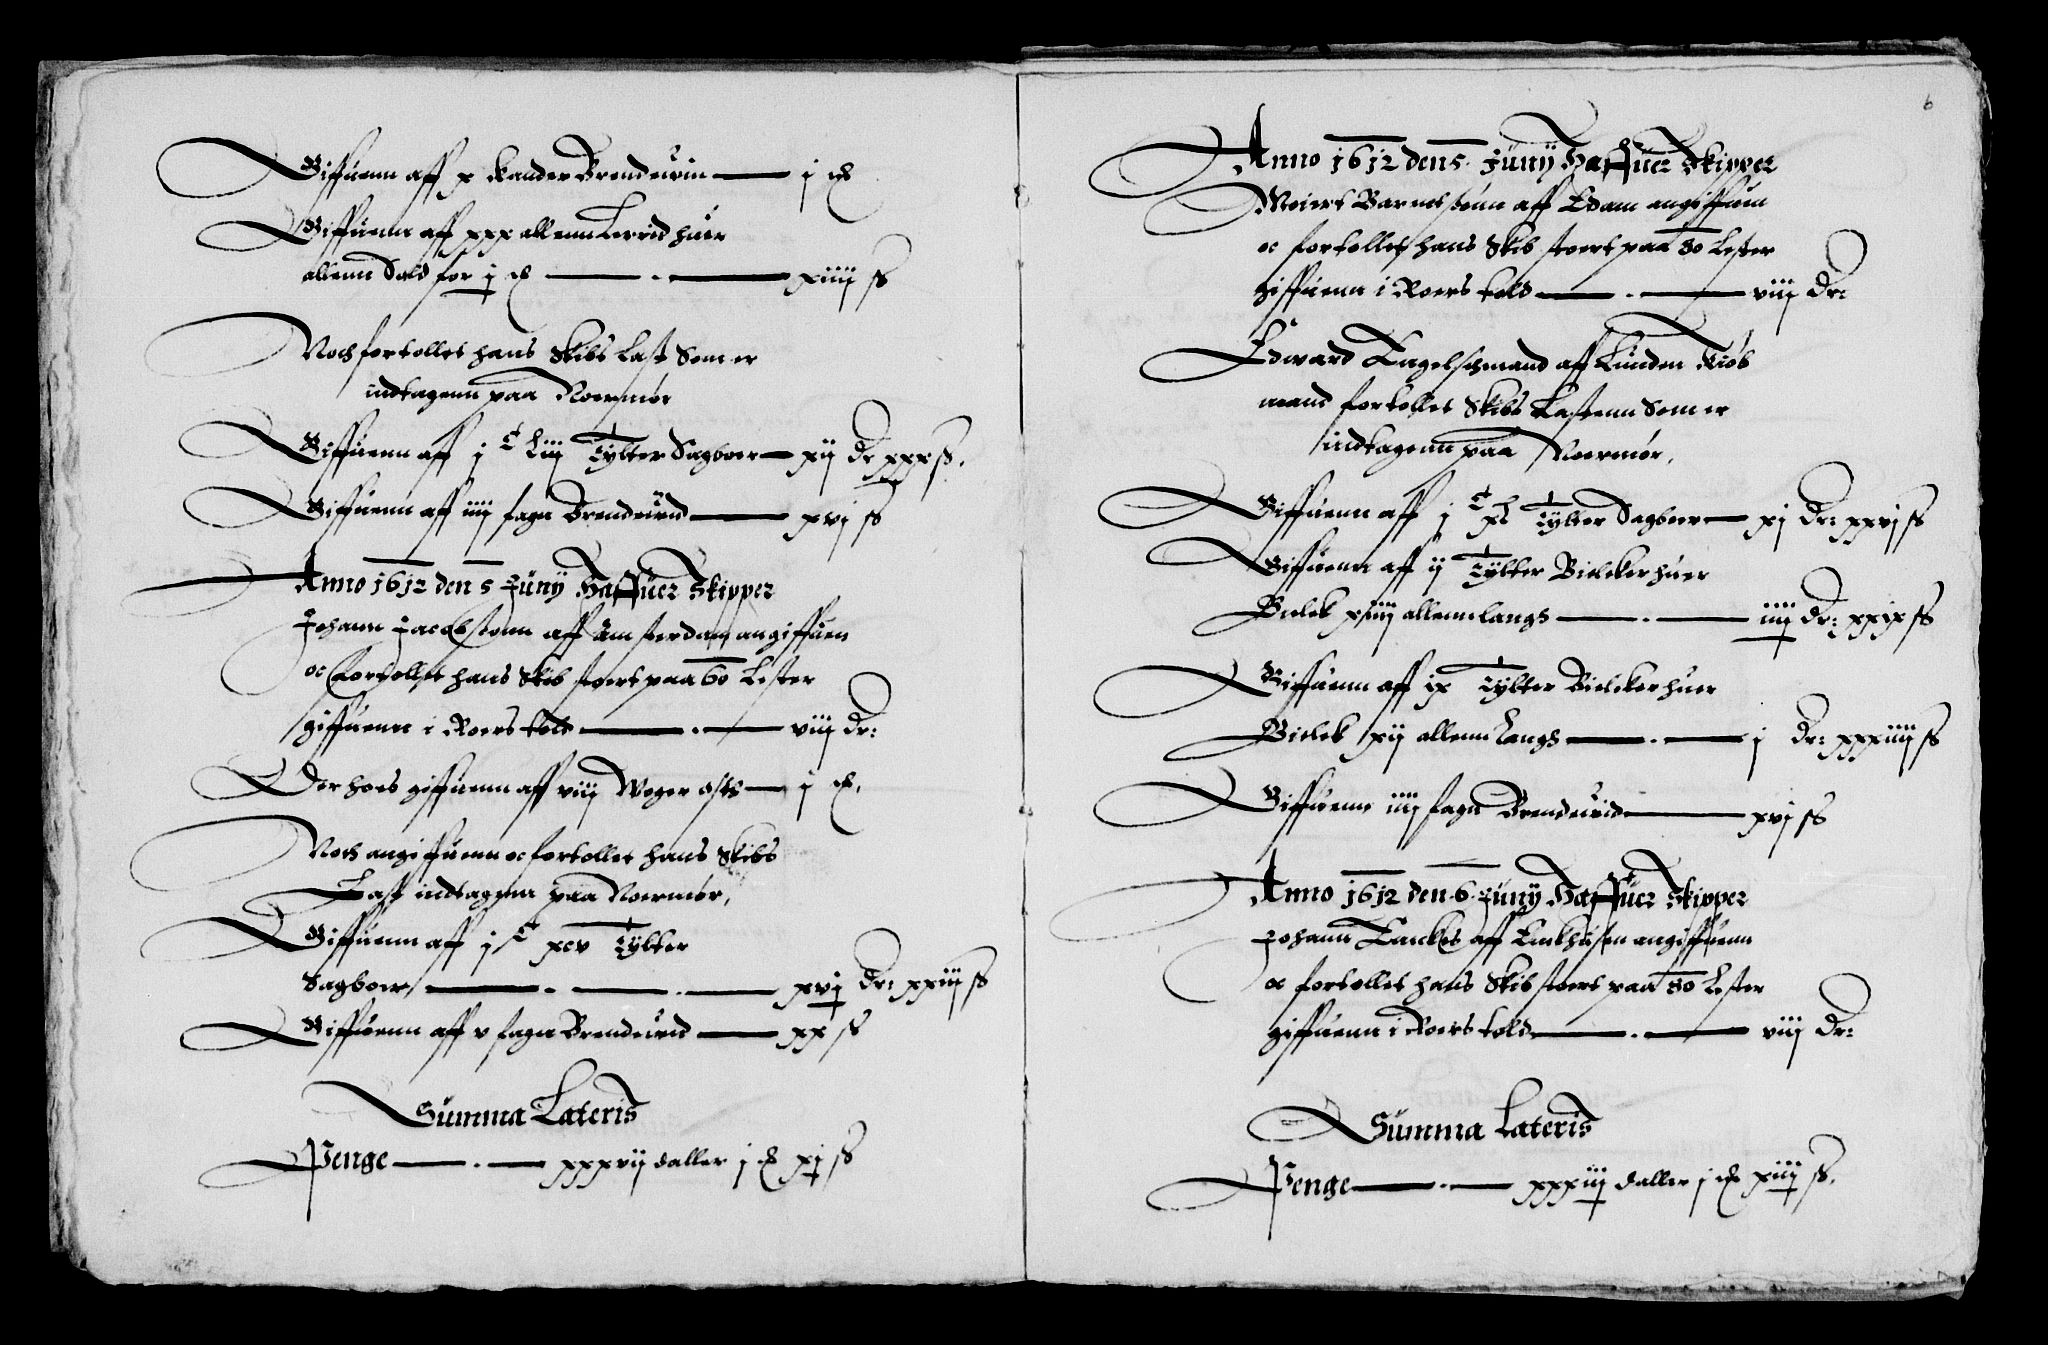 Giffuenn aff x kander Brendeuin j
Giffuenn aff xxx allenn Lerrid huer
allenn Sold for j xiiij ß
Noch fortollet hans Skibs Last Som er
indtagenn paa Noermør
Giffuenn aff j C Liij Tylter Sagboer xij Dr xxx ß.
Giffuenn aff iiij fagn Brendeuid xvj ß
Anno 1612 den 5 Junij Haffuer Skipper
Johann Jacobsonn aff Amsterdam angiffuen
oc Fortollet hans Skib stoert paa 60 Lester
giffuenn i Roers told viij Dr:
Der hoes giffuenn aff viij Woger osts j
Noch angiffuenn oc fortollet hans Skibs
Last indtagenn paa Noermør,
Giffuenn aff j C xcv Tylter
Sagboer xvj Dr: xxiij ß
Giffuenn aff v fagn Brendeuid xx ß
Summa Lateris
Penge xxxvij daller j xj ß
6
Anno 1612 den 5. Junij Haffuer Skipper
Meiert Barentsonn aff Edam angiffuen
oc fortollet hans Skib stoert paa 50 Lester
giffuenn i Roers told viij Dr:
Edward Engelschmand aff Lunden Kiøb
mand fortollet Skibs Lastenn Som er
indtagenn paa Noermør,
Giffuenn aff j C xl Tylter Sagboer xj Dr: xxvj ß
Giffuenn aff ij Tylter Bielcker huer
Bielck xiiij allenn langs iiij Dr: xxix ß
Giffuenn aff ix Tylter Bielcker huer
Bielck xij allenn Langs j Dr: xxxiiij ß
Giffuenn iiij fagn Brendeuid xvj ß
Anno 1612 den 6. Junij Haffuer Skipper
Johann aff Enckhusen angiffuenn
oc fortollet hans Skib stoert paa 50 Lester
giffuenn i Roers told viij Dr:
Summa Lateris
Penge xxxiij daller j xiiij ß.